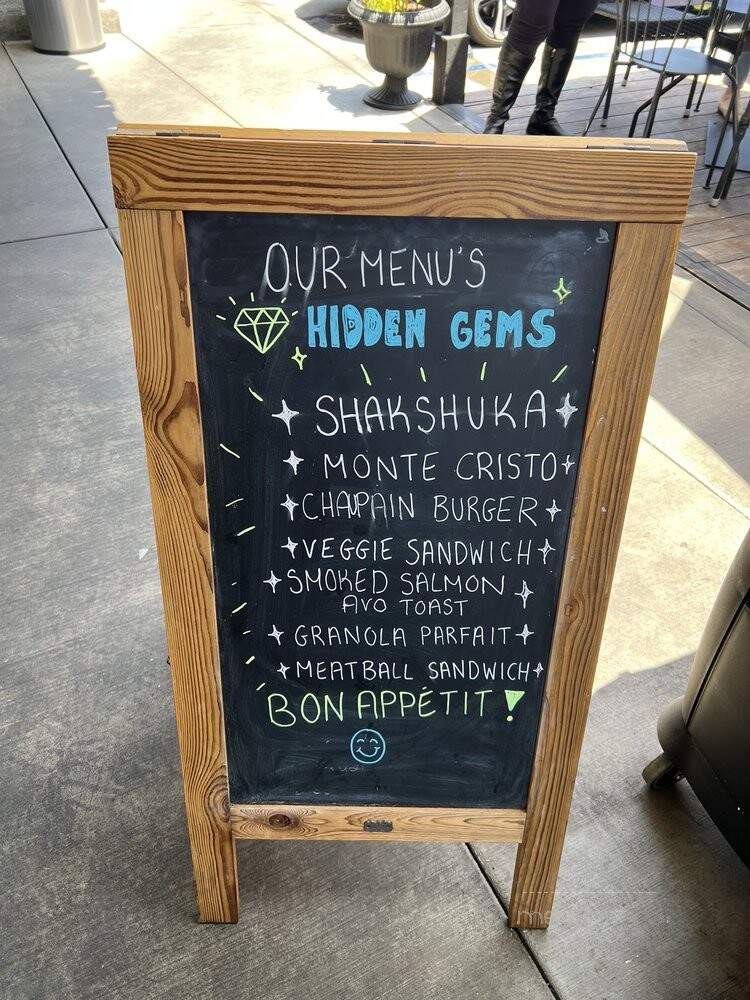 OUR MENU'S
HIDDEN GEMS
SHAKSHUKA
MONTE CRISTO
CHAUPAIN BURGER
VEGGIE SANDWICH
SMOKED SALMON
AVO TOAST
GRANOLA PARFAIT
MEATBALL SANDWICH
BON APPÉTIT!